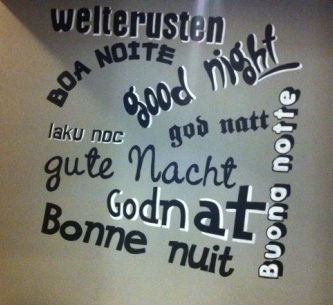 welterusten
BOA NOITE
good night
laku noc
god natt
gute Nacht
Godnat
Bonne nuit
Buona notte